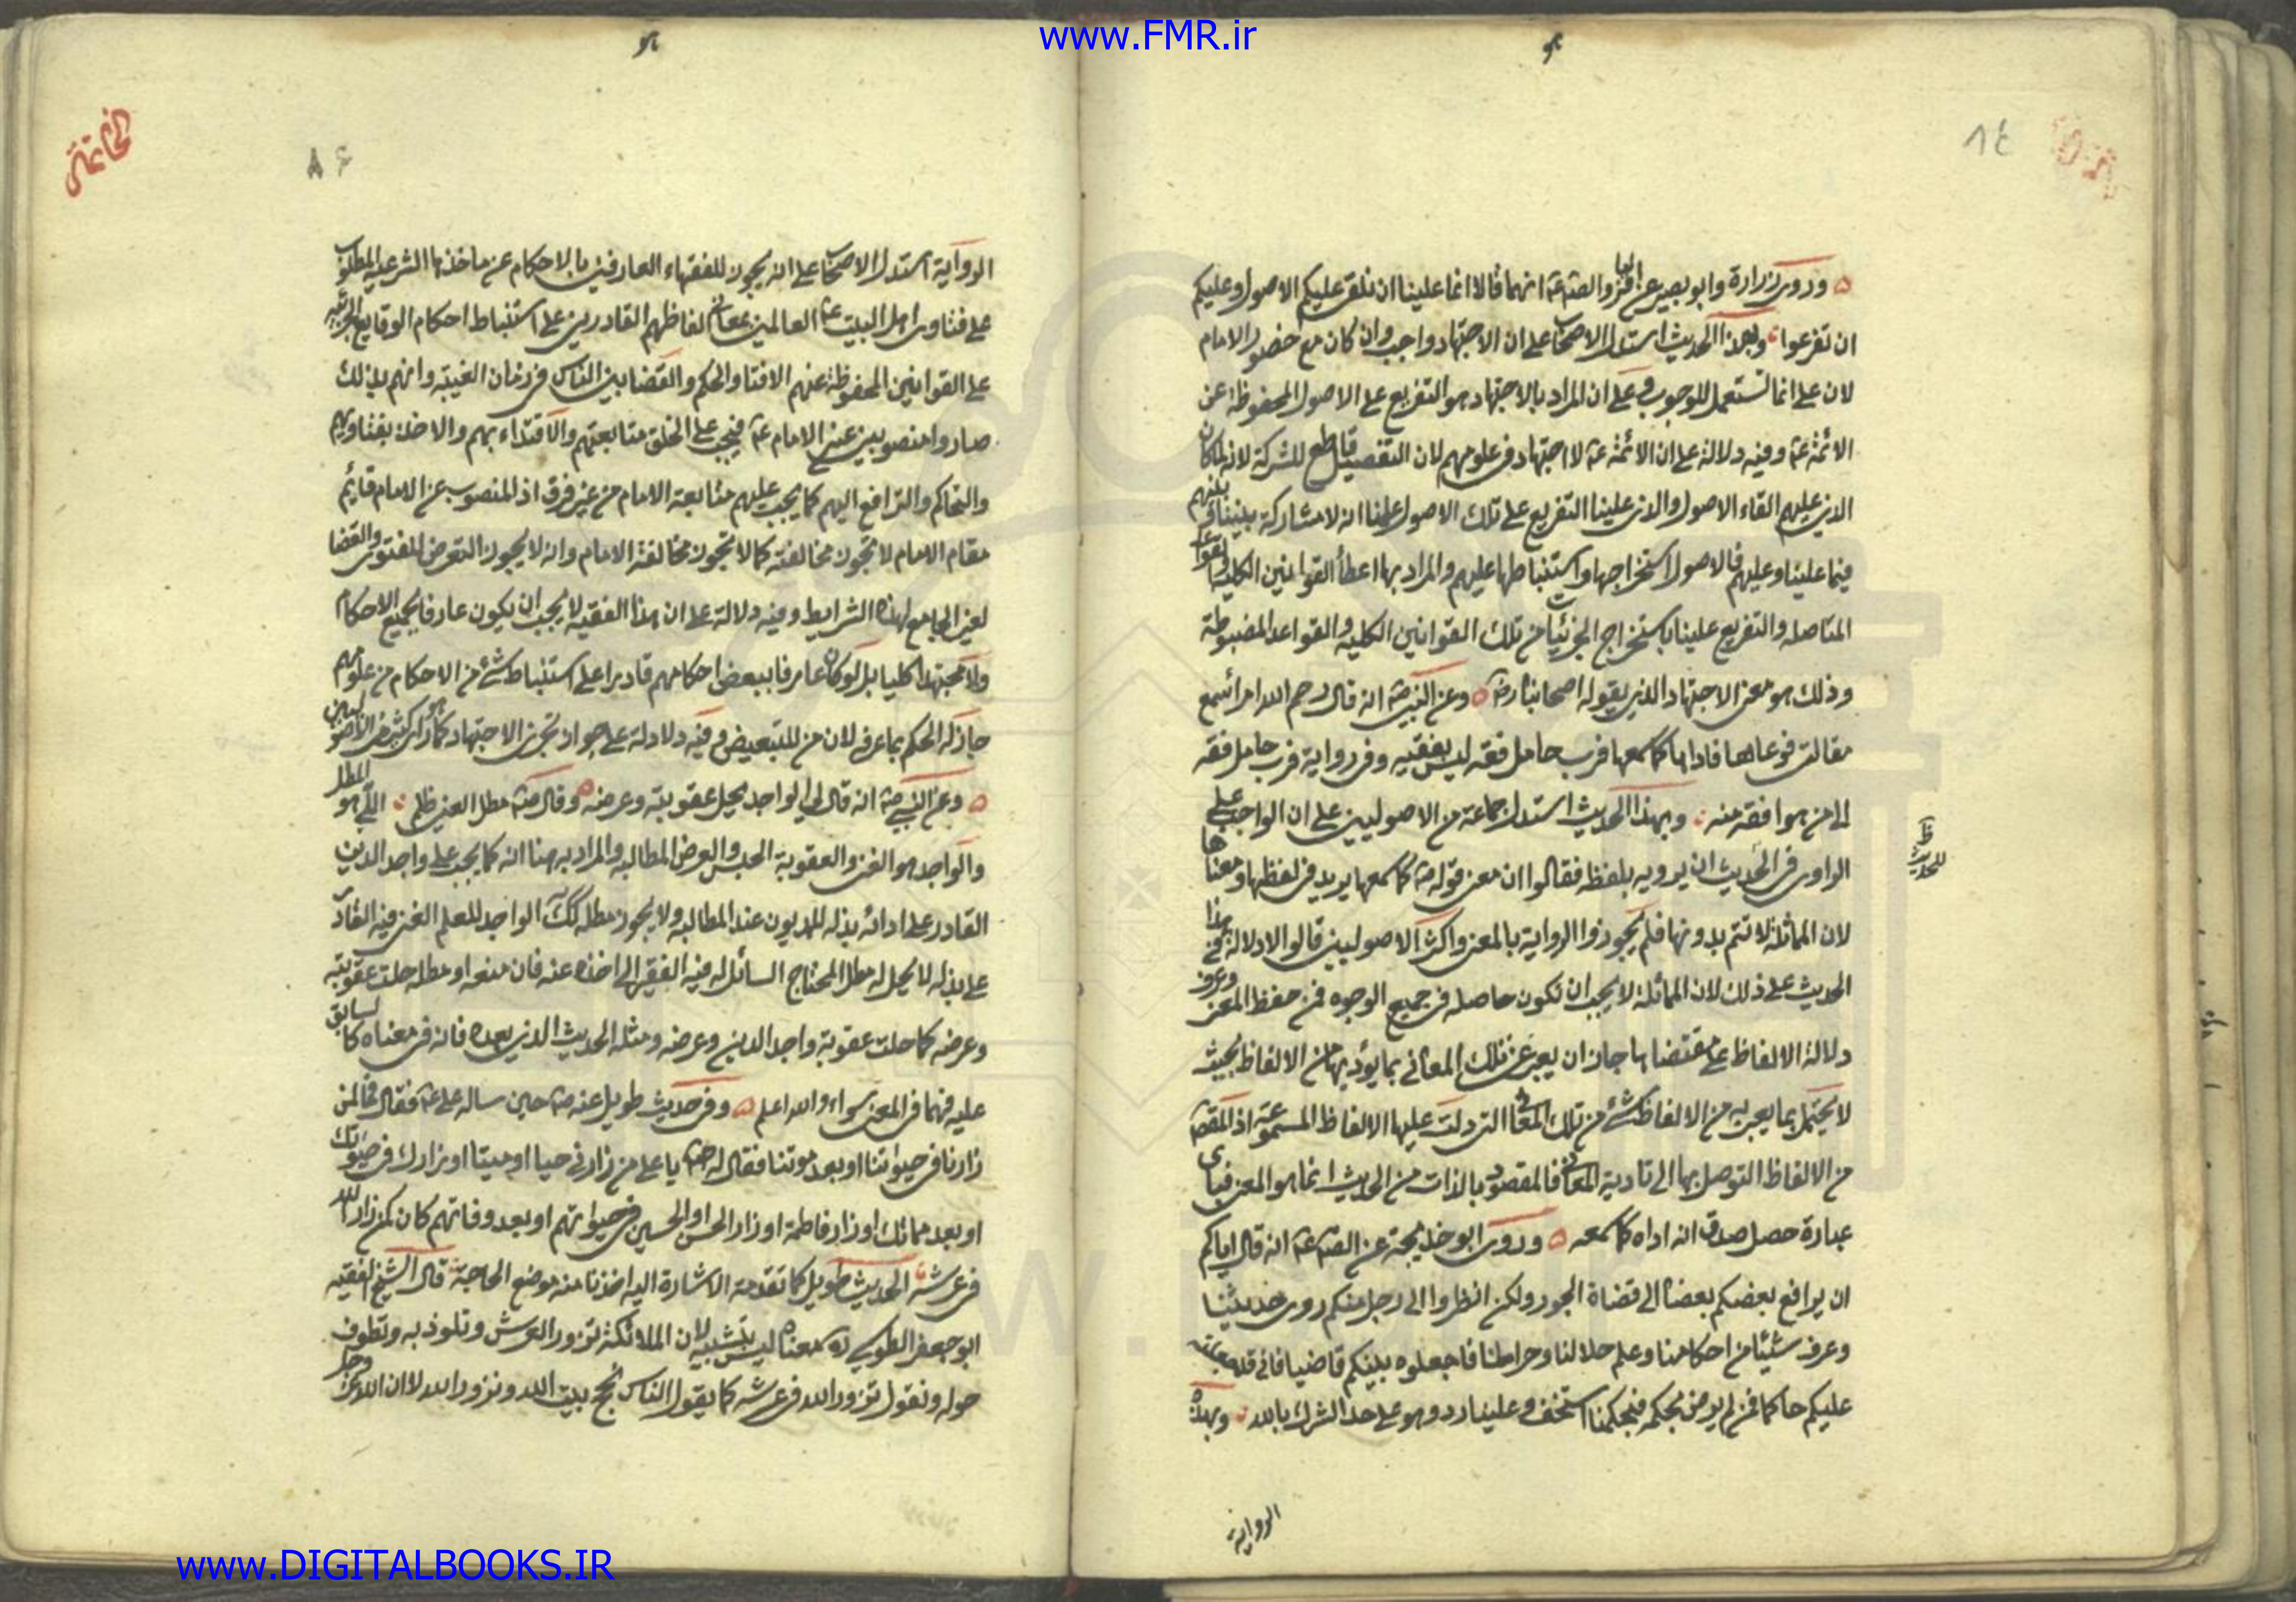 www.FMR.ir
٨٤
وروى زرارة وابو بصير عن الباقر والصادق ع انهما قالا انما علينا ان نلقى عليكم الاصول وعليكم
ان تفرعوا وبهذا الحديث استدل الاصحاب على ان الاجتهاد واجب وان كان مع حضور الامام
لان على انما تستعمل للوجوب وعلى ان المراد بالاجتهاد هو التفريع على الاصول المحفوظة عن
الائمة ع وفيه دلالة على ان الائمة ع لا اجتهاد فى علومهم لان التفصيل قاطع للشركة لانه لما كان
الذى عليهم القاء الاصول والذى علينا التفريع على تلك الاصول علمنا انه لا مشاركة بيننا وبينهم
فيما علينا وعليهم فالاصول استخراجها واستنباطها عليهم والمراد بها اعطاء القوانين الكلية والقواعد
المتاصله والتفريع علينا باستخراج الجزئيات من تلك القوانين الكليه والقواعد المضبوطة
وذلك هو معنى الاجتهاد الذى يقوله اصحابنا رض وعن النبى ص انه قال رحم الله امرأ سمع
مقالتى فوعاها فاداها كما سمعها فرب حامل فقه ليس بفقيه وفى رواية فرب حامل فقه
الى من هو افقه منه وبهذا الحديث استدل جماعة من الاصوليين على ان الواجب على
الراوى فى الحديث ان يرويه بلفظه فقالوا ان معنى قوله ص كما سمعها يريد فى لفظها ومعناها
لان المماثلة لا تتم بدونها فلم يجوزوا الرواية بالمعنى واكثر الاصوليين قالوا لا دلالة فى هذا
الحديث على ذلك لان المماثلة لا يجب ان تكون حاصله فى جميع الوجوه فمن حفظ المعنى وعرف
دلالة الالفاظ على مقتضاها جاز ان يعبر عن تلك المعانى بما يؤديها من الالفاظ بحيث
لا يختل بما يعبر به من الالفاظ شئ من تلك المعانى التى دلت عليها الالفاظ المسموعة اذ المقصود
من الالفاظ التوصل بها الى تادية المعانى فالمقصود بالذات من الحديث انما هو المعنى فباى
عبارة حصل صدق انه اداه كما سمعه وروى ابو خديجة عن الصادق ع انه قال اياكم
ان يرافع بعضكم بعضا الى قضاة الجور ولكن انظروا الى رجل منكم روى حديثنا
وعرف شيئا من احكامنا وعلم حلالنا وحرامنا فاجعلوه بينكم قاضيا فانى قد جعلته
عليكم حاكما فمن لم يرض بحكمه فبحكمنا استخف وعلينا رد وهو على حد الشرك بالله وبهذه
الرواية
٨٤
الرواية استدل الاصحاب على انه يجوز للفقهاء العارفين بالاحكام عن ماخذها الشرعية المطلوب
على فتاوى اهل البيت ع العالمين بمعانى الفاظهم القادرين على استنباط احكام الوقايع الجزئية
على القوانين المحفوظة عنهم الافتا والحكم والقضا بين الناس فى زمان الغيبة وانهم بذلك
صاروا منصوبين عن الامام ع فيجب على الخلق متابعتهم والاقتداء بهم والاخذ بفتاويهم
والتحاكم والترافع اليهم كما يجب عليهم متابعة الامام من غير فرق اذ المنصوب عن الامام قايم
مقام الامام لا تجوز مخالفته كما لا تجوز مخالفة الامام وانه لا يجوز التعرض للفتوى والقضا
لغير الجامع لهذه الشرايط وفيه دلالة على ان هذا الفقيه لا يجب ان يكون عارفا بجميع الاحكام
ولا مجتهدا كليا بل لو كان عارفا ببعض احكامهم قادرا على استنباط شئ من الاحكام من علومهم
جاز له الحكم بما عرف لان من للتبعيض وفيه دلالة على جواز تجزى الاجتهاد كما هو راى كثير من الاصوليين
وعن النبى ص انه قال لى الواجد يحل عقوبته وعرضه وقال ص مطل الغنى ظلم اللى هو المطل
والواجد هو الغنى والعقوبة الحبس والعرض المطالبه والمراد به هنا انه كما يجب على واجد الدين
القادر على ادائه بذله للمديون عند المطالبه ولا يجوز مطله كذلك الواجد للعلم الغنى فيه القادر
على بذله لا يحل له مطل المحتاج السائل له فيه الفقير الى اخذه عنه فان منعه او مطله حلت عقوبته
وعرضه كما حلت عقوبة واجد الدين وعرضه ومثله الحديث الذى بعده فانه فى معناه كالسابق
عليه فهما فى المعنى سواء والله اعلم وفى حديث طويل عنه ص حين ساله على ع فقال فما لمن
زارنا فى حيواتنا او بعد موتنا فقال له ص يا على من زارنى حيا او ميتا او زارك فى حيوتك
او بعد مماتك او زار فاطمة او زار الحسن او الحسين فى حيواتهم او بعد وفاتهم كان كمن زار الله
فى عرشه الحديث طويل كما تقدمت الاشارة اليه اخذنا منه موضع الحاجة قال الشيخ الفقيه
ابو جعفر الطوسى ره معناه ليس بتشبيه لان الملائكة تزور العرش وتلوذ به وتطوف
حوله ونقول تزور الله فى عرشه كما يقول الناس نحج بيت الله ونزور الله لا ان الله عز وجل
www.DIGITALBOOKS.IR